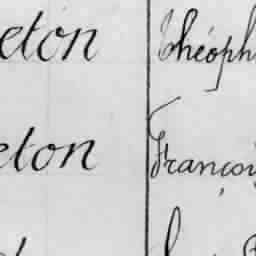 eton Théoph
eton Françoi